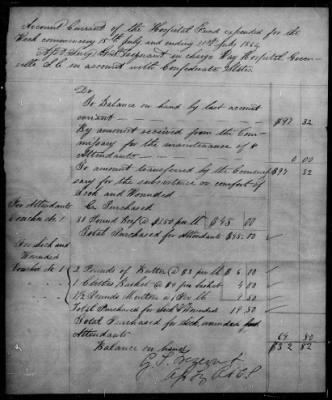 Account Current of the Hospital Fund expended for the
Week commencing 5th July and ending 11th July 1864
Surgeon in charge Way Hospital Green-
ville S.C. in account with Confederate States
Do
To Balance on hand by last account
current $97 32
By amount received from the Com-
missary for the maintenance of
Attendants 0 00
To amount transferred by the Commis- $97 32
sary for the subsistence or comfort of
Sick and Wounded
For Attendants Co Purchased
Voucher No 1 30 Pound Beef @ $1.50 per lb $45.00
Total Purchased for Attendants $45.00
For Sick and
Wounded
Voucher No 1 2 Pounds of Butter @ $3 per lb $ 6.00
1 Basket @ $4 per basket 4.00
Pounds Mutton @ per lb
Total Purchased for Sick & Wounded 19.50
Total Purchased for Sick wounded and
Attendants 64 50
Balance in hand $32 82